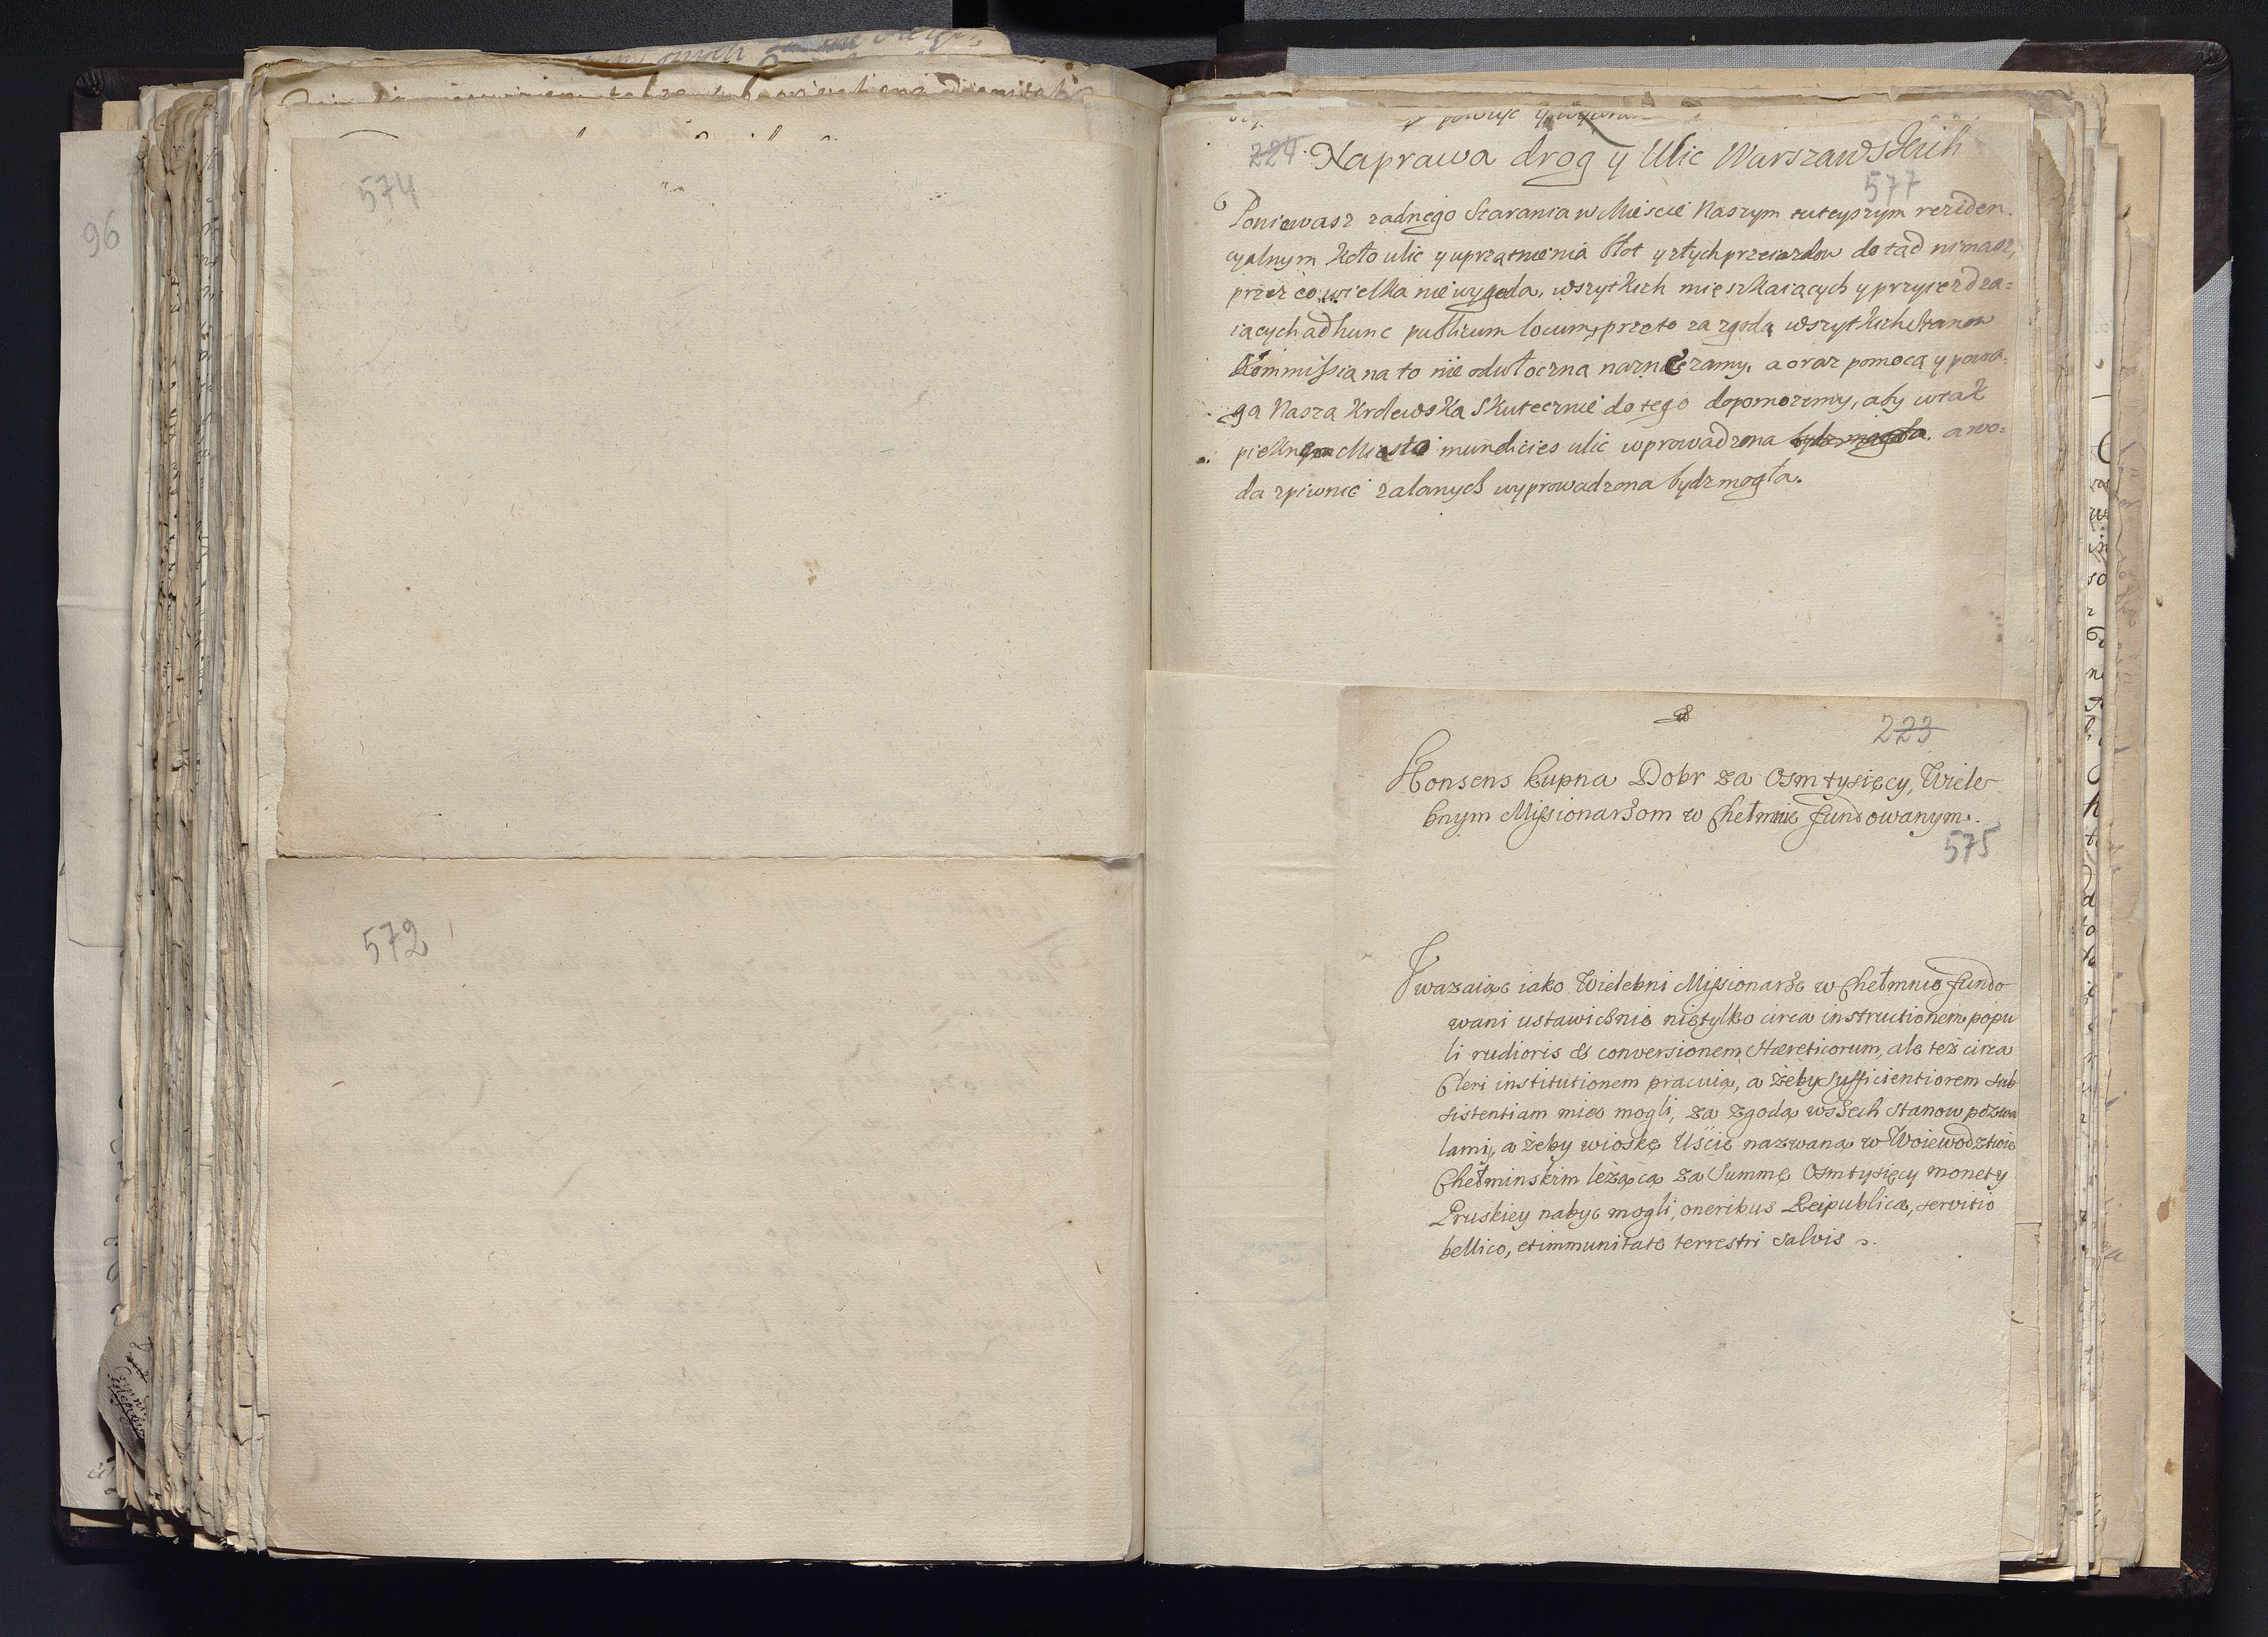 96
574
572
224. Naprawa drog y Ulic Warszawskich
577
Poniewasz zadnego starania w Miescie Naszym tuteyszym reziden.
cyalnym koło ulic y uprzątnienia błot y złych przeiazdow do tąd nimasz,
przez co wielka niewygoda, wszytkich mieszkaiących y przyiezdza=
iących ad hunc publicum locum, przeto za zgodą wszytkich stanow
Kommissia na to nieodwłoczna naznaczamy, a oraz pomocą y powa.
gą Naszą Krolewską skutecznie do tego dopomozemy, aby w tak
pieknym Miescie mundicies ulic wprowadzona bydz mogła. a wo=
da z piwnic zalanych wyprowadzona bydz mogła.
223
Konsens kupna Dobr za Osm tysięcy, Wiele-
bnym Missionarzom w Chełmnie fundowanym.
575
Uwazaiąc iako Wielebni Missionarze w Chełmnie fundo
wani ustawicznie nietylko circa instructionem popu
li rudioris & conversionem Hæreticorum, ale też circa
Cleri institutionem pracuią, a żeby sufficientiorem sub
sistentiam miec mogli, za zgodą wszech stanow pozwa
lamy, a żeby wioskę Uście nazwaną w Woiewodztwie
Chełminskim leżącą za Summę Osm tysięcy monety
Pruskiey nabyc mogli, oneribus Reipublicæ, servitio
bellico, et immunitate terrestri salvis.